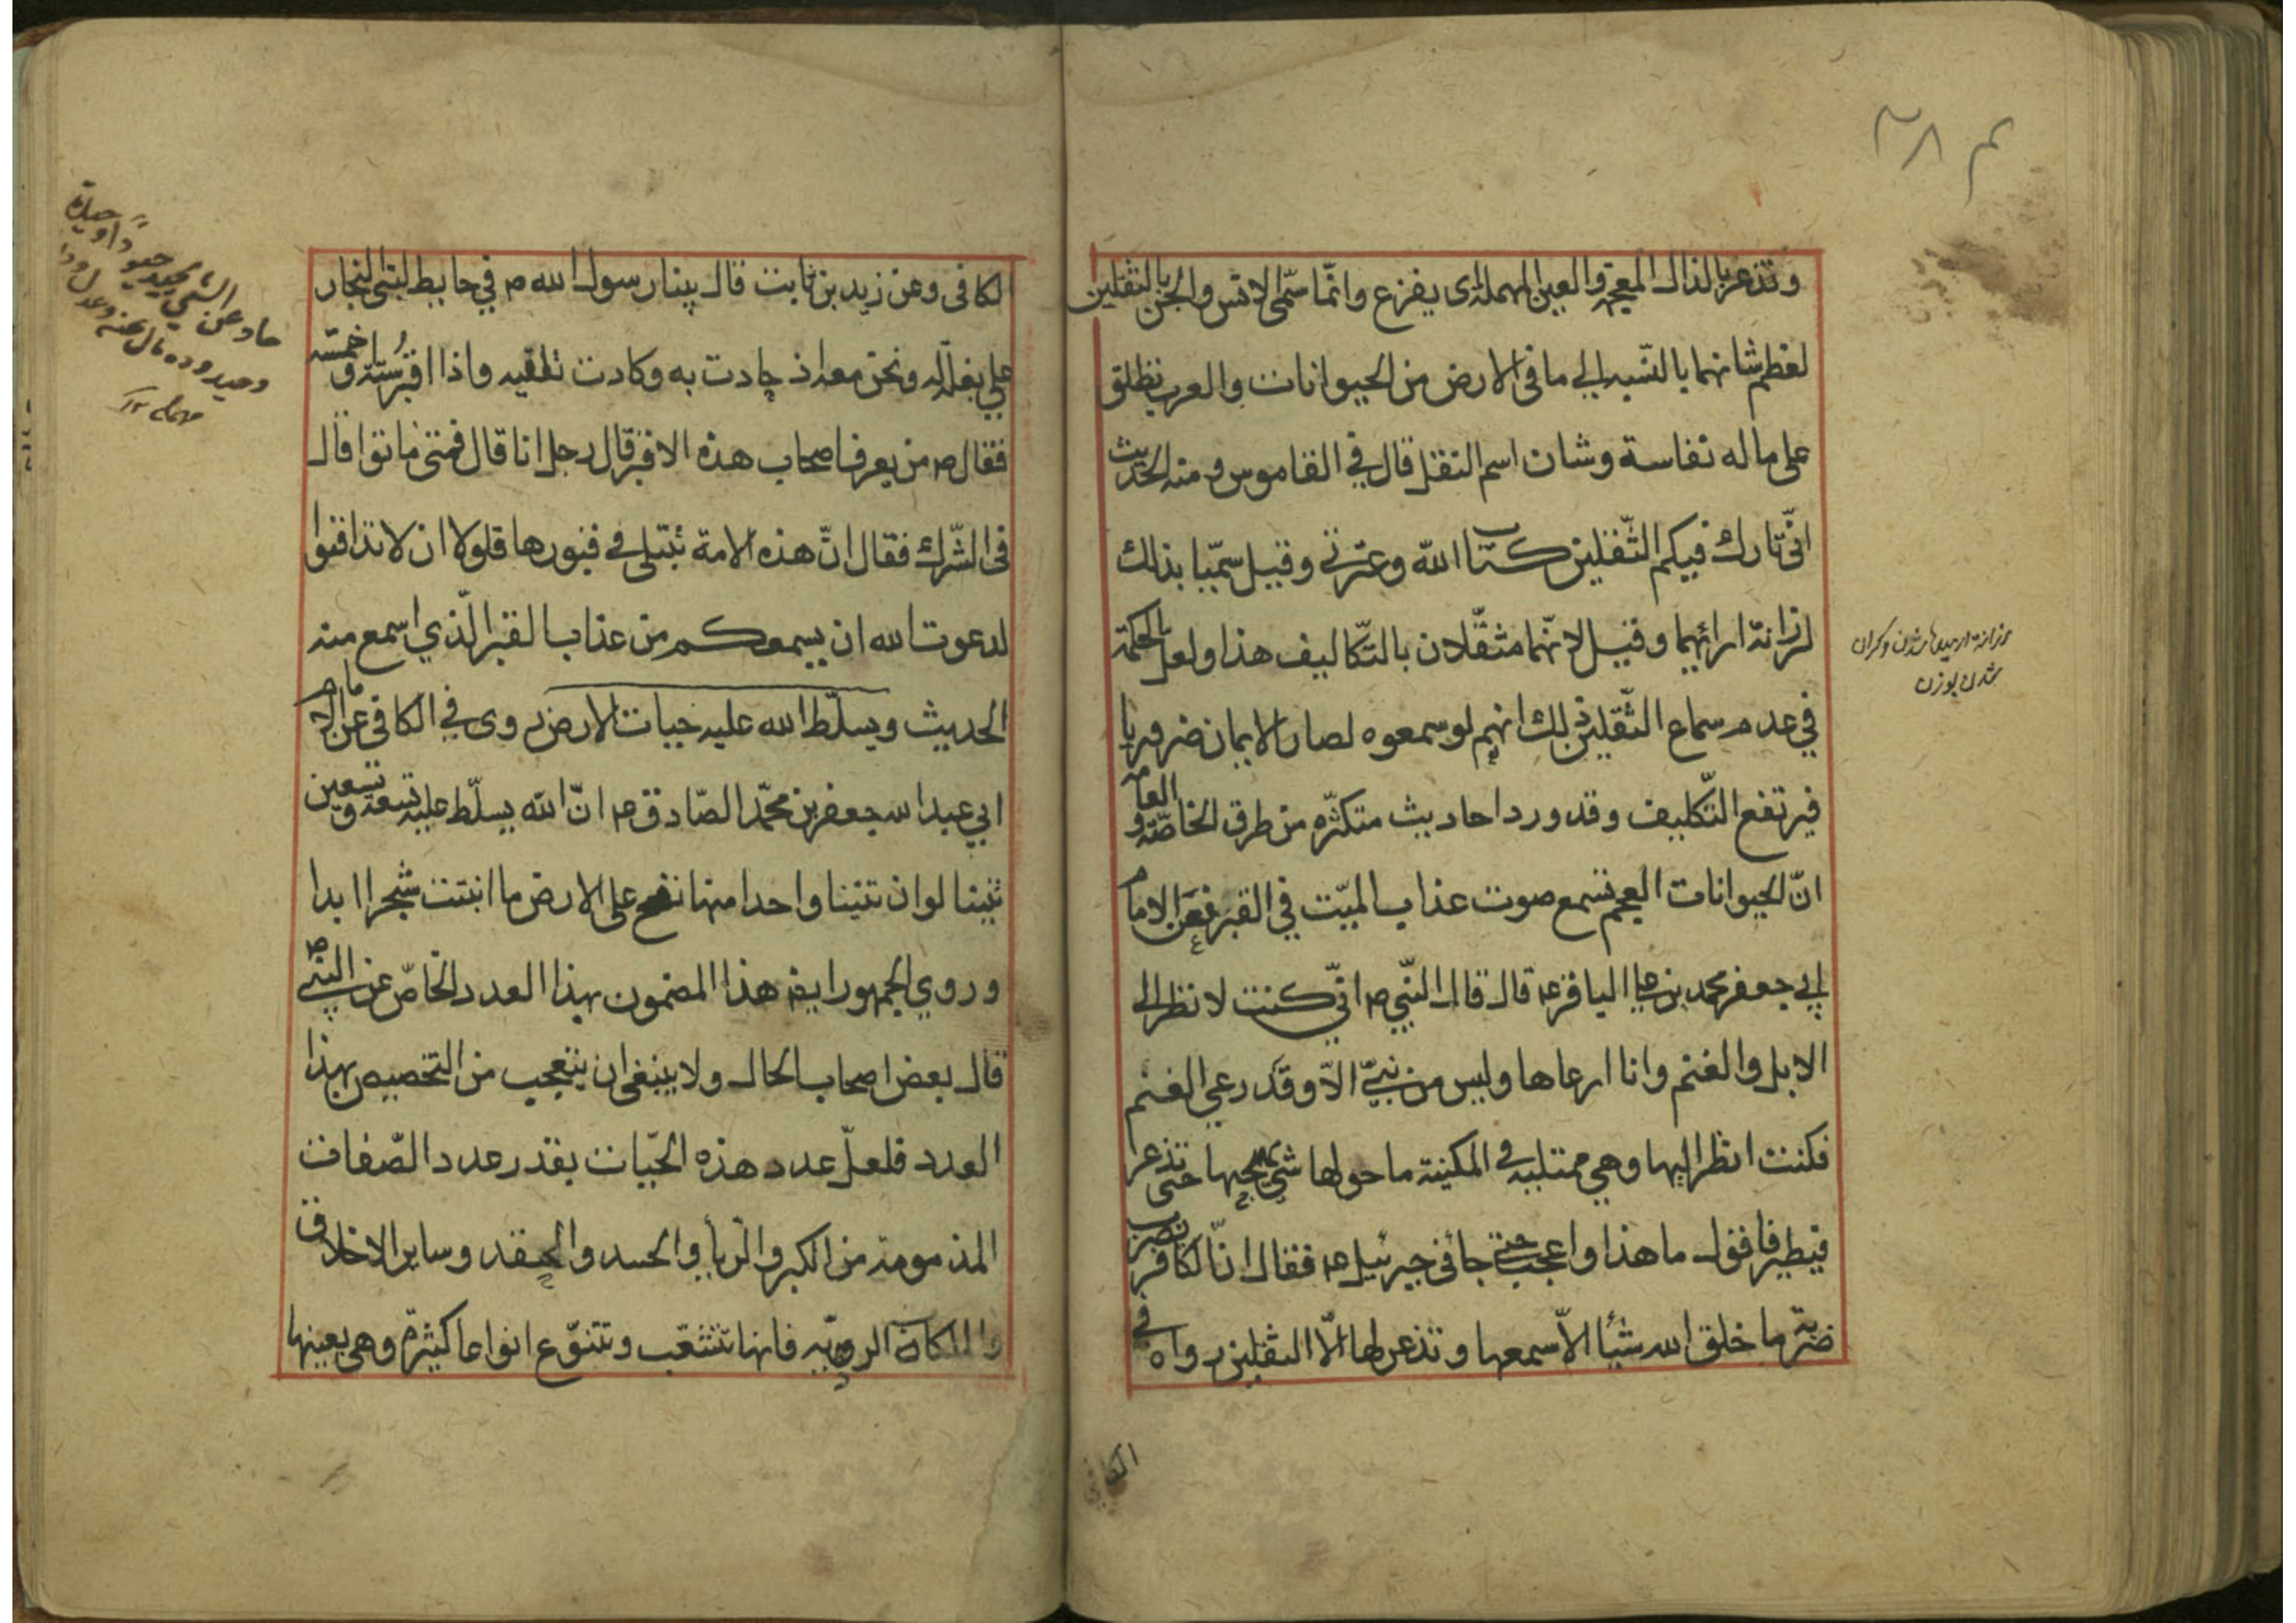 وتذعر بالذال المعجمة والعين المهملة اى يفزع وانّما سمّى الانس والجن بالثقلين
لعظم شانهما بالنسبة الى ما فى الارض من الحيوانات والعرب يطلق
على ما له نفاسة وشان اسم الثقل قال في القاموس ومنه الحديث
انّى تارك فيكم الثّقلين كتاب الله وعترتى وقيل سمّيا بذلك
لرزانة ارائهما وقيل لانّهما مثقّلان بالتّكاليف هذا ولعل الحكمة
في عدم سماع الثّقلين ذلك انهم لو سمعوه لصار الايمان ضروريا
فيرتفع التّكليف وقد ورد احاديث متكثّره من طرق الخاصّة والعامة
انّ الحيوانات العجم تسمع صوت عذاب الميّت في القبر فعن الامام
ابي جعفر محمد بن على الباقر ع قال قال النّبي ص انّي كنت لانظر الى
الابل والغنم وانا ارعاها وليس من نبيّ الّا وقد رعى الغنم
فكنت انظر اليها وهي ممتلية في المكينة ما حولها شيء يهيجها حتى تذعر
فيطير فاقول ما هذا واعجب حتى جائنى جبرئيل ع فقال انّ الكافر يضرب
ضربة ما خلق الله شيأ الّا سمعها وتذعر لها الّا الثقلين رواه في
الكافى
رزانة شدن وكران
شدن بوزن
الكافى وعن زيد بن ثابت قال بينا رسول الله ص في حايط لبنى النجار
على بغلة له ونحن معه اذ حادت به وكادت تلقيه واذا اقبر ستة وخمسة
فقال ص من يعرف اصحاب هذه الاقبر قال رجل انا قال فمتى ماتوا قال
فى الشّرك فقال انّ هذه الامة تبتلى في قبورها فلولا ان لا تدافنوا
لدعوت الله ان يسمعكم من عذاب القبر الّذي اسمع منه
الحديث ويسلّط الله عليه حيات الارض روى في الكافى عن الامام
ابي عبد الله جعفر بن محمّد الصّادق ع انّ الله يسلّط عليه تسعة وتسعين
تنينا لو ان تنينا واحدا منها نفخ على الارض ما انبتت شجرا ابدا
وروي الجمهور ايضا هذا المضمون بهذا العدد الخاصّ عن النبي ص
قال بعض اصحاب الحال ولا ينبغى ان يتعجب من التخصيص بهذا
العدد فلعلّ عدد هذه الحيّات بقدر عدد الصّفات
المذمومة من الكبر والريا والحسد والحقد وساير الاخلاق
والملكات الرديّة فانها تتشعّب وتتنوّع انواعا كثيرة وهى بعينها
حاد عن الشيء يحيد حيودا وحيدة
وحيدودة مال عنه وعدل